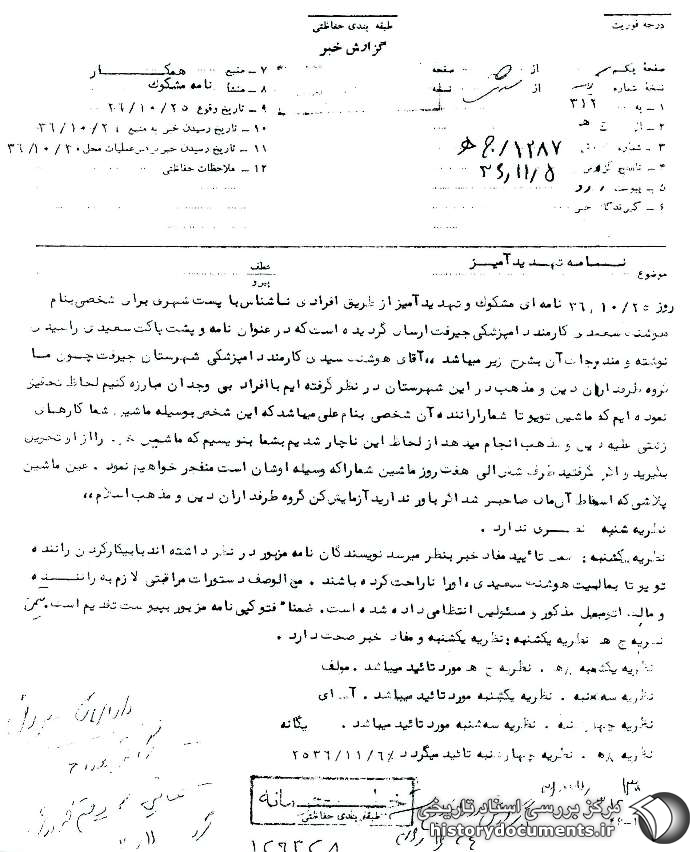 درجه فوریت
طبقه بندی حفاظتی
گزارش خبر
صفحه یکم از صفحه
نسخه شماره از نسخه
۱ - به ۳۱۲
۲ - از هـ
۳ - شماره ۱۲۸۷/ هـ ج
۴ - تاریخ گزارش ۳۶/۱۱/۵
۵ - پیوست
۶ - گیرندگان خبر
۷ - منبع همکار
۸ - منشأ نامه مشکوک
۹ - تاریخ وقوع ۳۶/۱۰/۲۵
۱۰ - تاریخ رسیدن خبر به منبع
۱۱ - تاریخ رسیدن خبر به رهبر عملیات محل ۳۶/۱۰/۲۰
۱۲ - ملاحظات حفاظتی
موضوع نامه تهدید آمیز
عطف
پیرو
روز ۳۶/۱۰/۲۵ نامه ای مشکوک و تهدید آمیز از طریق افرادی ناشناس با پست شهری برای شخصی بنام
هوشنگ سعیدی کارمند دامپزشکی جیرفت ارسال گردیده است که در عنوان نامه و پشت پاکت سعیدی را سیدی
نوشته و مندرجات آن بشرح زیر میباشد ،،آقای هوشنگ سیدی کارمند دامپزشکی شهرستان جیرفت چون ما
گروه طرفداران دین و مذهب در این شهرستان در نظر گرفته ایم با افراد بی وجدان مبارزه کنیم لحاظ تحقیق
نموده ایم که ماشین تویوتا شما راننده آن شخصی بنام علی میباشد که این شخص بوسیله ماشین شما کارهای
زشتی علیه دین و مذهب انجام میدهد از لحاظ این ناچار شدیم بشما بنویسیم که ماشین خود را از او تحویل
بگیرید و اگر نگرفتید ظرف شش الی هفت روز ماشین شما را که وسیله اوشان است منفجر خواهیم نمود . عین ماشین
پلاشی که اسقاط آن مال صاحبش شد اگر باور ندارید آزمایش کن گروه طرفداران دین و مذهب اسلام،،
نظریه شنبه نظری ندارد .
نظریه یکشنبه: ضمن تائید مفاد خبر بنظر میرسد نویسندگان نامه مزبور در نظر داشته اند با بیکار کردن راننده
تویوتا بمالکیت هوشنگ سعیدی ، او را ناراحت کرده باشند . مع الوصف دستورات مراقبتی لازم به راننده
و مالک اتومبیل مذکور و مسئولین انتظامی داده شده است. ضمناً فتوکپی نامه مزبور بپیوست تقدیم است. بهمن
نظریه ج هـ نظریه یکشنبه: نظریه یکشنبه و مفاد خبر صحت دارد .
نظریه یکشنبه هـ . نظریه ج هـ مورد تائید میباشد . مولف
نظریه سه شنبه . نظریه یکشنبه مورد تائید میباشد .
نظریه چهارشنبه . نظریه سه شنبه مورد تائید میباشد . یگانه
نظریه هـ . نظریه چهارشنبه تائید میگردد ۲۵۳۶/۱۱/۶
خیلی محرمانه
طبقه بندی حفاظتی
۱۲۹۳۲۸
مرکز بررسی اسناد تاریخی
historydocuments.ir